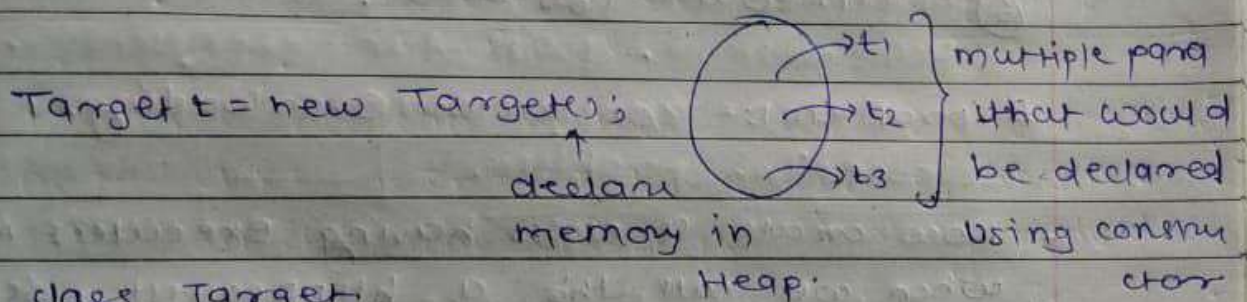 Target t = new Target();
declare
memory in
Heap.
→t1
→t2
→t3
multiple para
that would
be declared
using constru
ctor
class Target